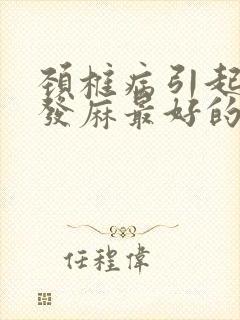 頚椎病引起
發麻最好的
任程偉